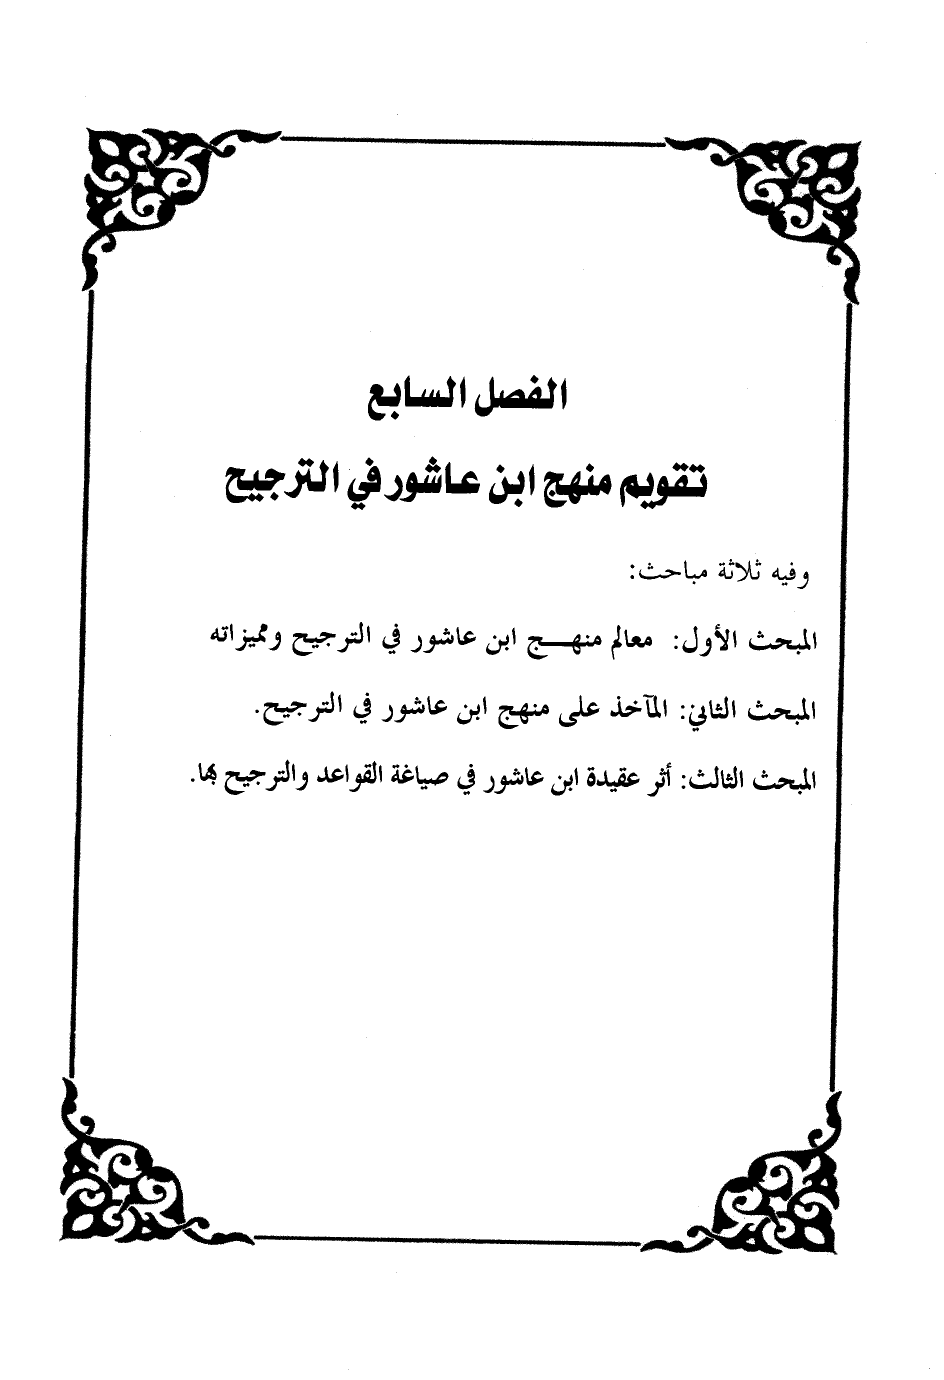 الفصل السابع
تقويم منهج ابن عاشور في الترجيح
وفيه ثلاثة مباحث:
المبحث الأول: معالم منهـــج ابن عاشور في الترجيح ومميزاته
المبحث الثاني: المآخذ على منهج ابن عاشور في الترجيح.
المبحث الثالث: أثر عقيدة ابن عاشور في صياغة القواعد والترجيح بها.